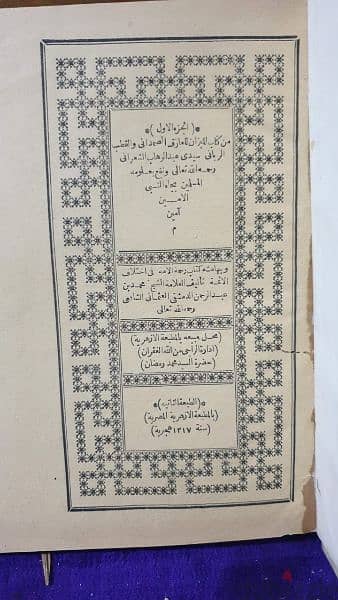 *( الجزء الاول )*
من كتاب الميزان للعارف الصمداني والقطب
الرباني سيدي عبد الوهاب الشعراني
رحمه الله تعالى ونفع بعلومه
المسلمين بجاه النبي
الامين
آمين
م
وبهامشه كتاب رحمة الامة فى اختلاف
الائمة تأليف العلامة الشيخ محمد بن
عبد الرحمن الدمشقى العثمانى الشافعى
رحمه الله تعالى
(محل مبيعه بالمطبعة الازهرية)
(ادارة الراجى من الله الغفران)
(حضرة السيد محمد رمضان)
*(الطبعة الثانية)*
(بالمطبعة الازهرية المصرية)
(سنة ١٣١٧ هجرية)